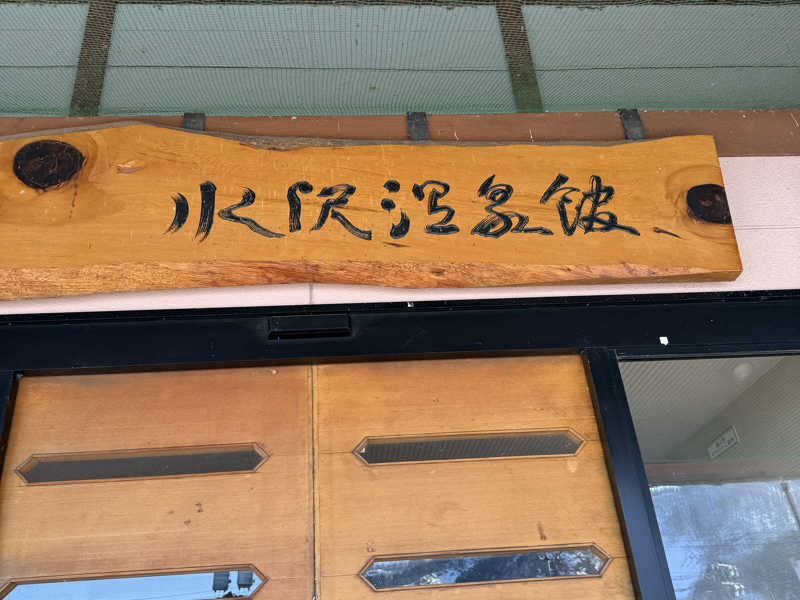 水沢温泉館